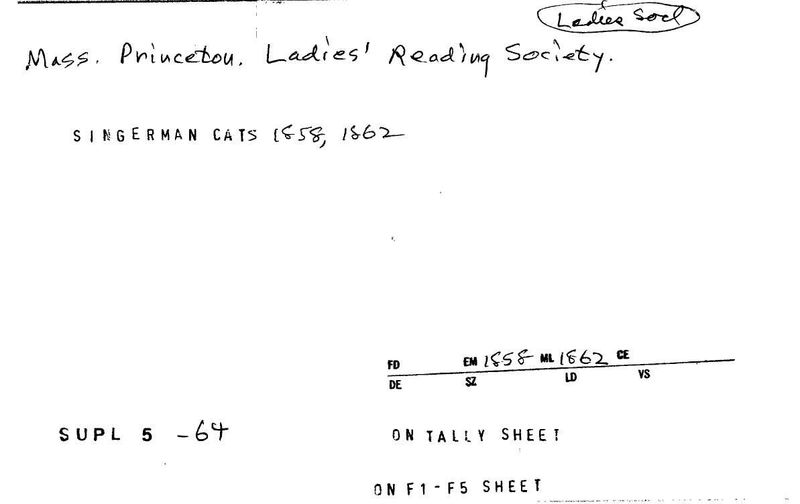 Ladies Socl
Mass. Princeton. Ladies' Reading Society.
SINGERMAN CATS 1858, 1862
FD EM 1858 ML 1862 CE
DE SZ LD VS
SUPL 5 -64
ON TALLY SHEET
ON F1-F5 SHEET